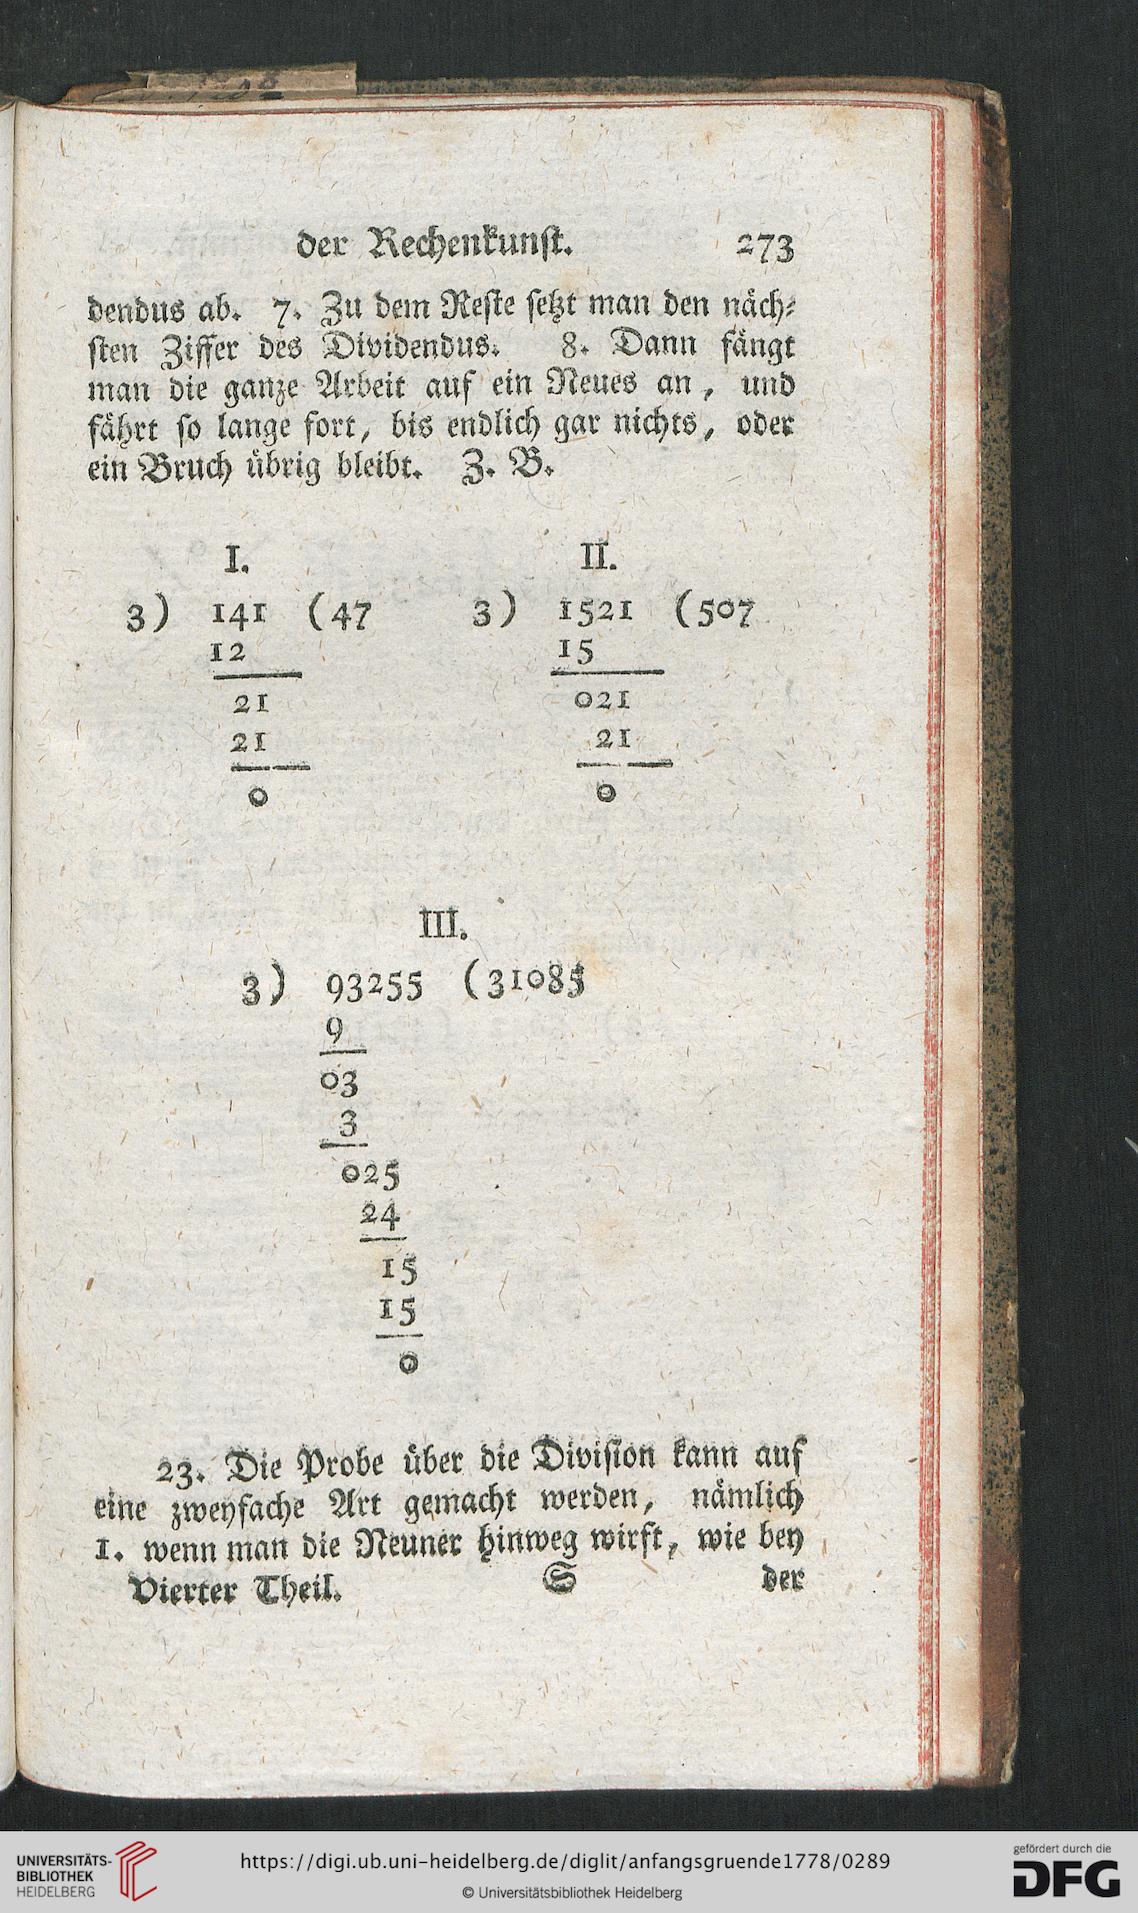 der Rechenkunst. 273
dendus ab. 7. Zu dem Reste setzt man den näch-
sten Ziffer des Dividendus. 8. Dann fängt
man die ganze Arbeit auf ein Neues an, und
fährt so lange fort, bis endlich gar nichts, oder
ein Bruch übrig bleibt. Z. B.
I. II.
3) 141 (47 3) 1521 (507
12 15
21 021
21 21
0 0
III.
3) 93255 (31085
9
03
3
025
24
15
15
0
23. Die Probe über die Division kann auf
eine zweyfache Art gemacht werden, nämlich
1. wenn man die Neuner hinweg wirft, wie bey
Vierter Theil. S der
UNIVERSITÄTS-
BIBLIOTHEK
HEIDELBERG
https://digi.ub.uni-heidelberg.de/diglit/anfangsgruende1778/0289
© Universitätsbibliothek Heidelberg
gefördert durch die
DFG